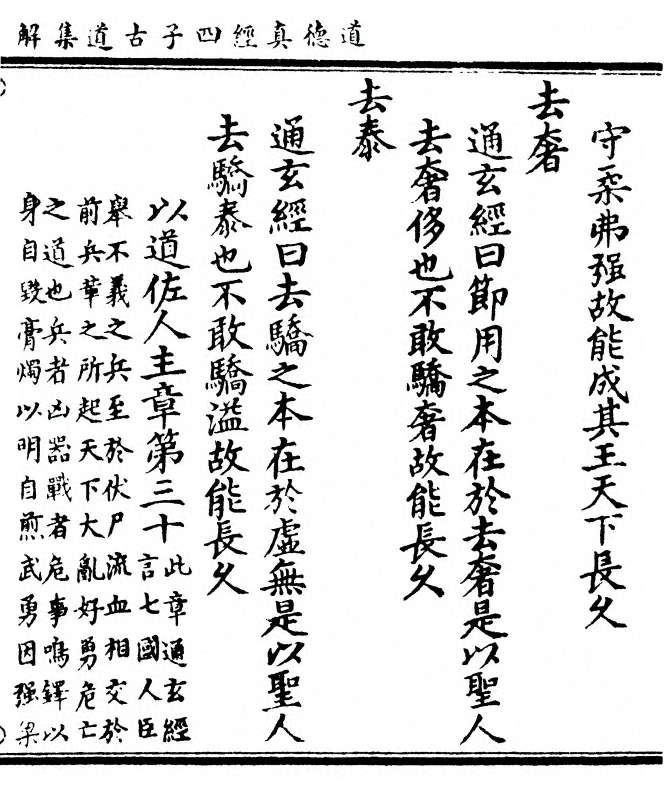 道德真經四子古道集解
守柔弗强故能成其王天下長久
去奢
通玄經曰節用之本在於去奢是以聖人
去奢侈也不敢驕奢故能長久
去泰
通玄經曰去驕之本在於虛無是以聖人
去驕泰也不敢驕溢故能長久
以道佐人主章第三十
此章通玄經
言七國人臣
舉不義之兵至於伏尸流血相交於
前兵革之所起天下大亂好勇危亡
之道也兵者凶器戰者危事鳴鐸以
身自毀膏燭以明自煎武勇因强梁